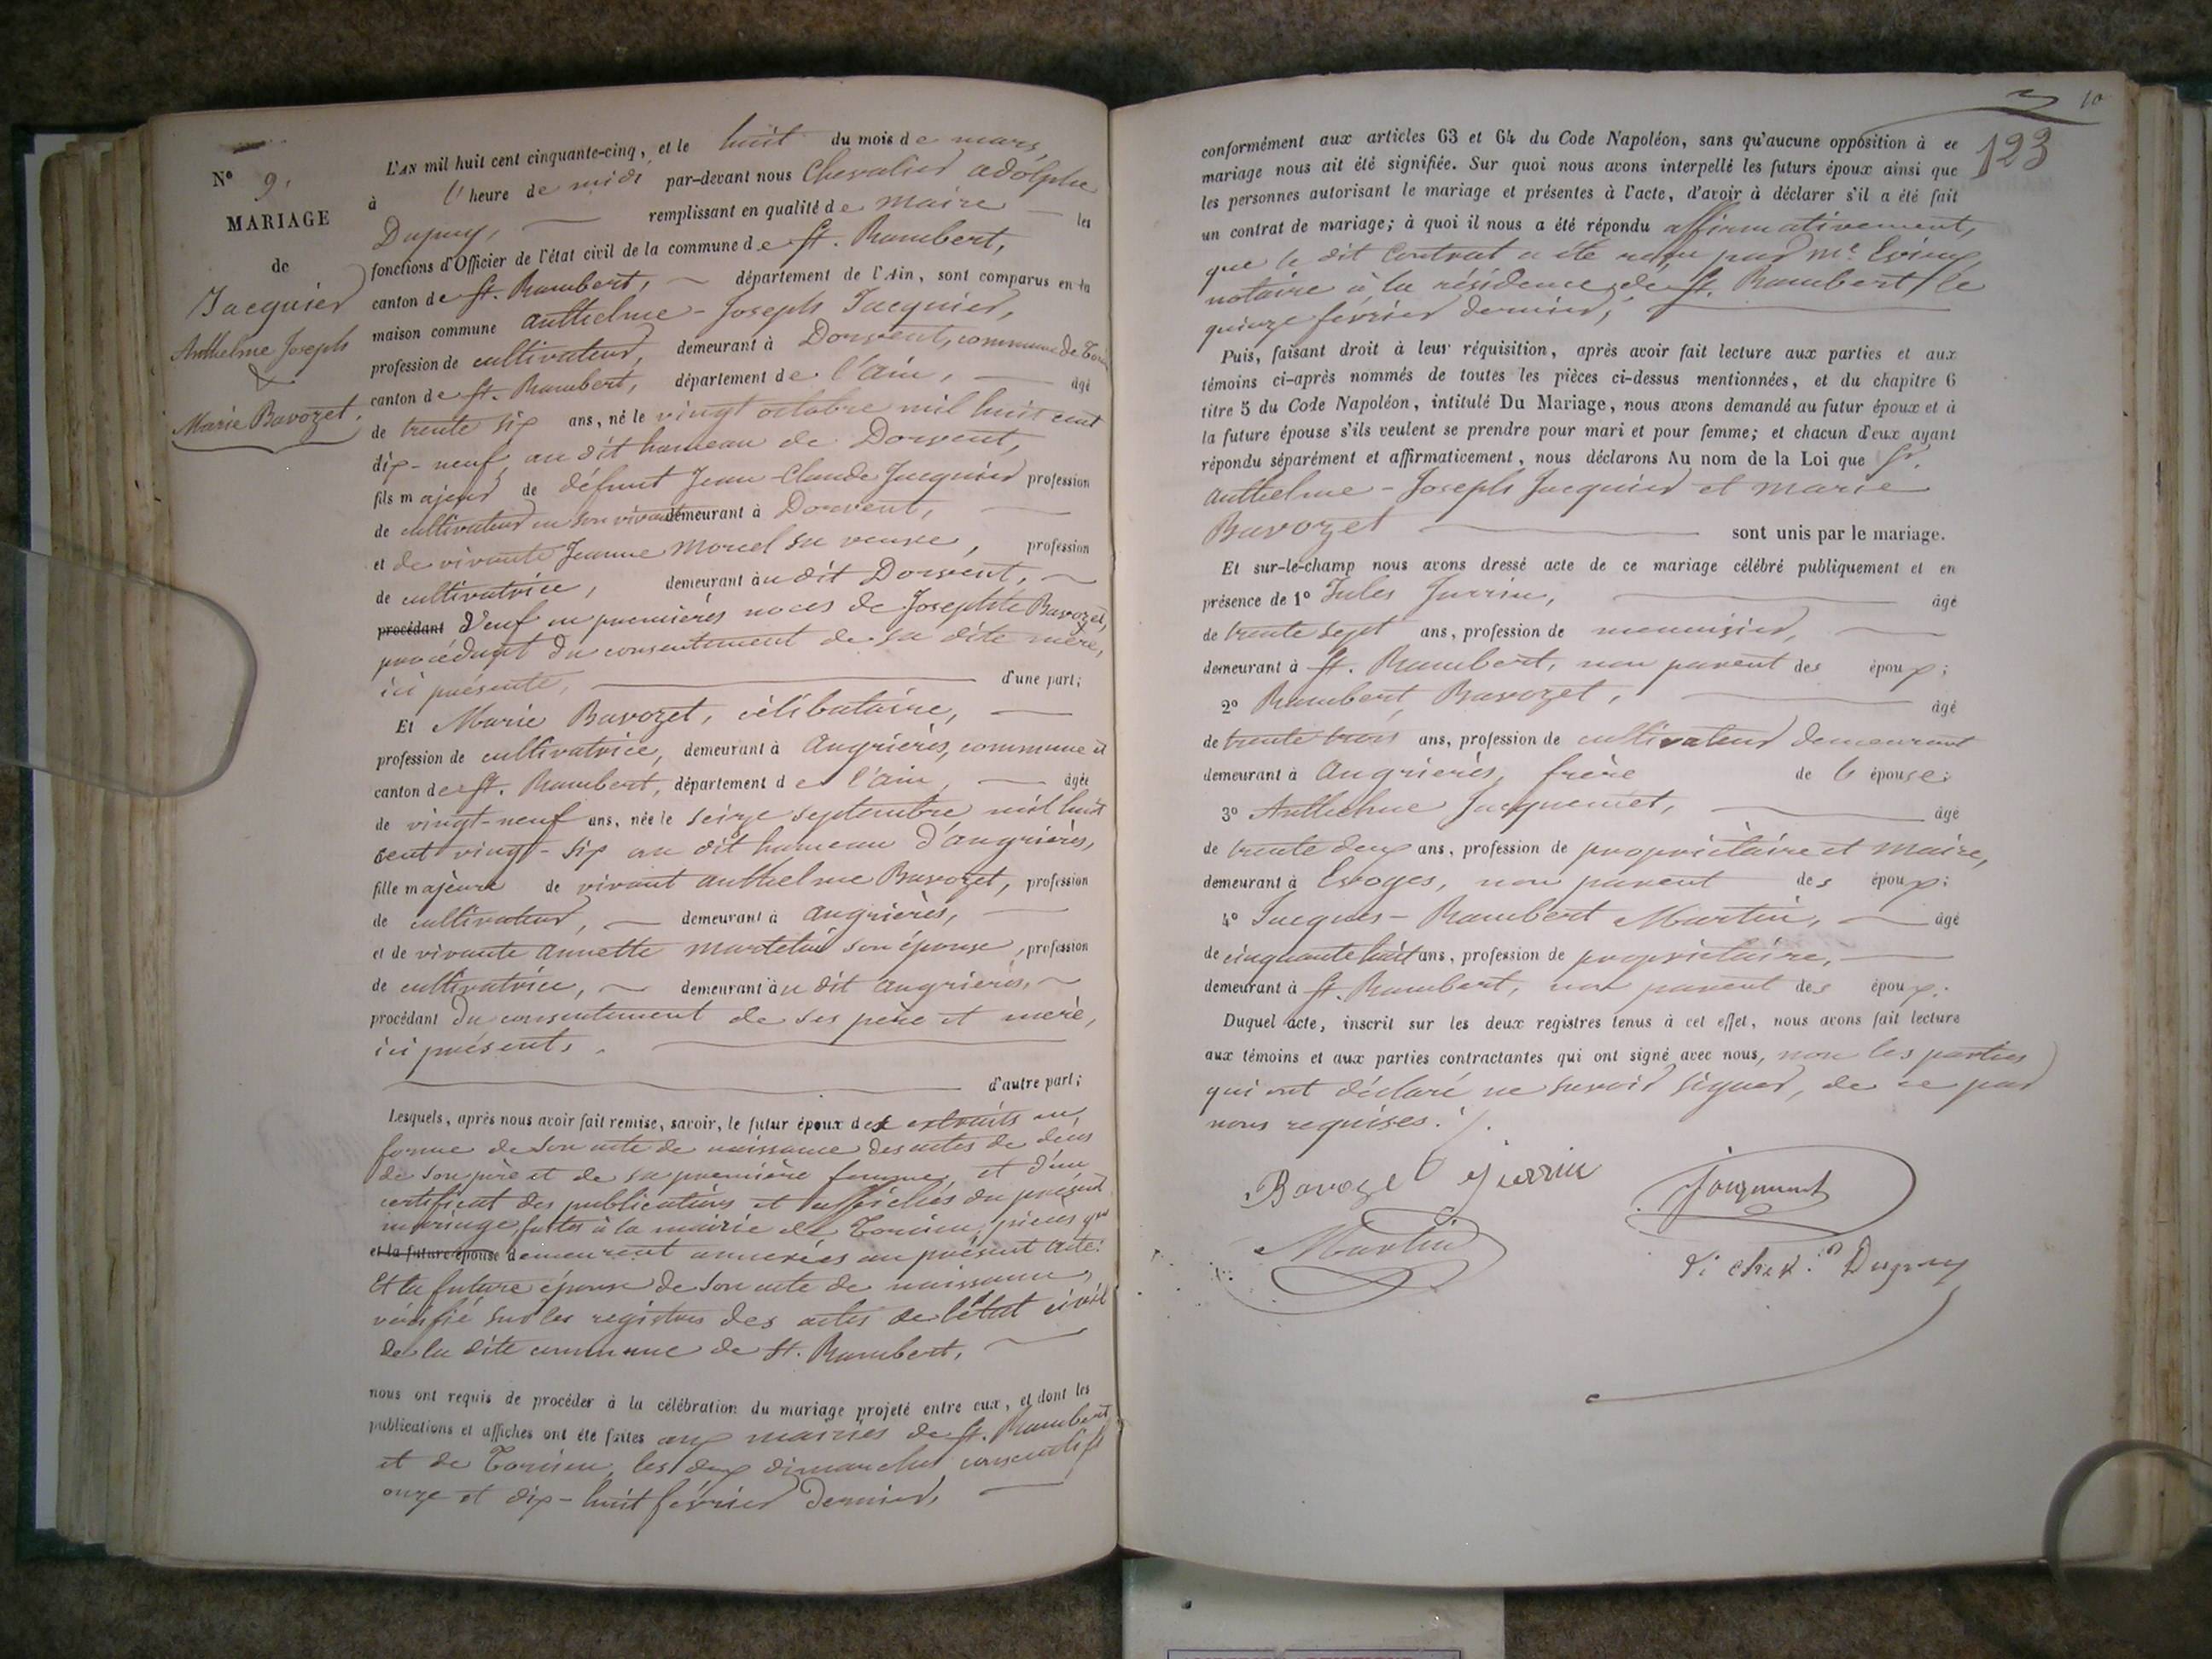 N° 9.
MARIAGE
de
Jacquier
Anthelme Joseph
&
Marie Bavozet.
L'AN mil huit cent cinquante-cinq, et le huit du mois de mars,
à l'heure de midi par-devant nous Chevalier adolphe
Dupuy, remplissant en qualité de Maire les
fonctions d'Officier de l'état civil de la commune de St. Rambert,
canton de St. Rambert, département de l'Ain, sont comparus en la
maison commune anthelme - Joseph Jacquier,
profession de cultivateur, demeurant à Dorvent, commune de
canton de St. Rambert, département de l'ain, âgé
de trente six ans, né le vingt octobre mil huit cent
dix-neuf, au dit hameau de Dorvent,
fils majeur de défunt Jean-Claude Jacquier profession
de cultivateur en son vivant demeurant à Dorvent,
et de vivante Jeanne Morcel sa veuve, profession
de cultivatrice, demeurant au dit Dorvent,
procédant Veuf en premières noces de Josephte Bavozet,
procédant du consentement de sa dite mère,
ici présente, d'une part;
Et Marie Bavozet, célibataire,
profession de cultivatrice, demeurant à Angrières, commune et
canton de St. Rambert, département de l'ain, âgée
de vingt-neuf ans, née le seize septembre mil huit
cent vingt-six au dit hameau d'angrières,
fille majeure de vivant anthelme Bavozet, profession
de cultivateur, demeurant à angrières,
et de vivante annette Martelin son épouse, profession
de cultivatrice, demeurant au dit angrières,
procédant du consentement de ses père et mère,
ici présents.
d'autre part;
Lesquels, après nous avoir fait remise, savoir, le futur époux des extraits en
forme de son acte de naissance des actes de décès
de son père et de sa première femme, et d'un
certificat des publications et affiches du présent
mariage faites à la mairie de Torcieu, pièces qui
et la future épouse demeurent annexées au présent acte.
Et la future épouse de son acte de naissance,
vérifié sur les registres des actes de l'état civil
de la dite commune de St. Rambert,
nous ont requis de procéder à la célébration du mariage projeté entre eux, et dont les
publications et affiches ont été faites aux mairies de St. Rambert
et de Torcieu, les deux dimanches consécutifs
onze et dix-huit février dernier,
10
123
conformément aux articles 63 et 64 du Code Napoléon, sans qu'aucune opposition à ce
mariage nous ait été signifiée. Sur quoi nous avons interpellé les futurs époux ainsi que
les personnes autorisant le mariage et présentes à l'acte, d'avoir à déclarer s'il a été fait
un contrat de mariage; à quoi il nous a été répondu affirmativement,
que le dit contrat a été reçu par Me.
notaire à la résidence de St. Rambert, le
quinze février dernier,
Puis, faisant droit à leur réquisition, après avoir fait lecture aux parties et aux
témoins ci-après nommés de toutes les pièces ci-dessus mentionnées, et du chapitre 6
titre 5 du Code Napoléon, intitulé Du Mariage, nous avons demandé au futur époux et à
la future épouse s'ils veulent se prendre pour mari et pour femme; et chacun d'eux ayant
répondu séparément et affirmativement, nous déclarons Au nom de la Loi que Sr.
anthelme - Joseph Jacquier et marie
Bavozet sont unis par le mariage.
Et sur-le-champ nous avons dressé acte de ce mariage célébré publiquement et en
présence de 1° Jules Juvrin, âgé
de trente sept ans, profession de menuisier,
demeurant à St. Rambert, non parent des époux;
2° Rambert Bavozet, âgé
de trente trois ans, profession de cultivateur demeurant
demeurant à Angrières, frère de l'épouse;
3° Anthelme Jacquemet, âgé
de trente deux ans, profession de propriétaire et Maire,
demeurant à Evoges, non parent des époux;
4° Jacques - Rambert Martin, âgé
de cinquante huit ans, profession de propriétaire,
demeurant à St. Rambert, non parent des époux.
Duquel acte, inscrit sur les deux registres tenus à cet effet, nous avons fait lecture
aux témoins et aux parties contractantes qui ont signé avec nous, non les parties
qui ont déclaré ne savoir signer, de ce par
nous requises ./.
Bavozet Juvrin Jacquemet
Martin
Dupuy